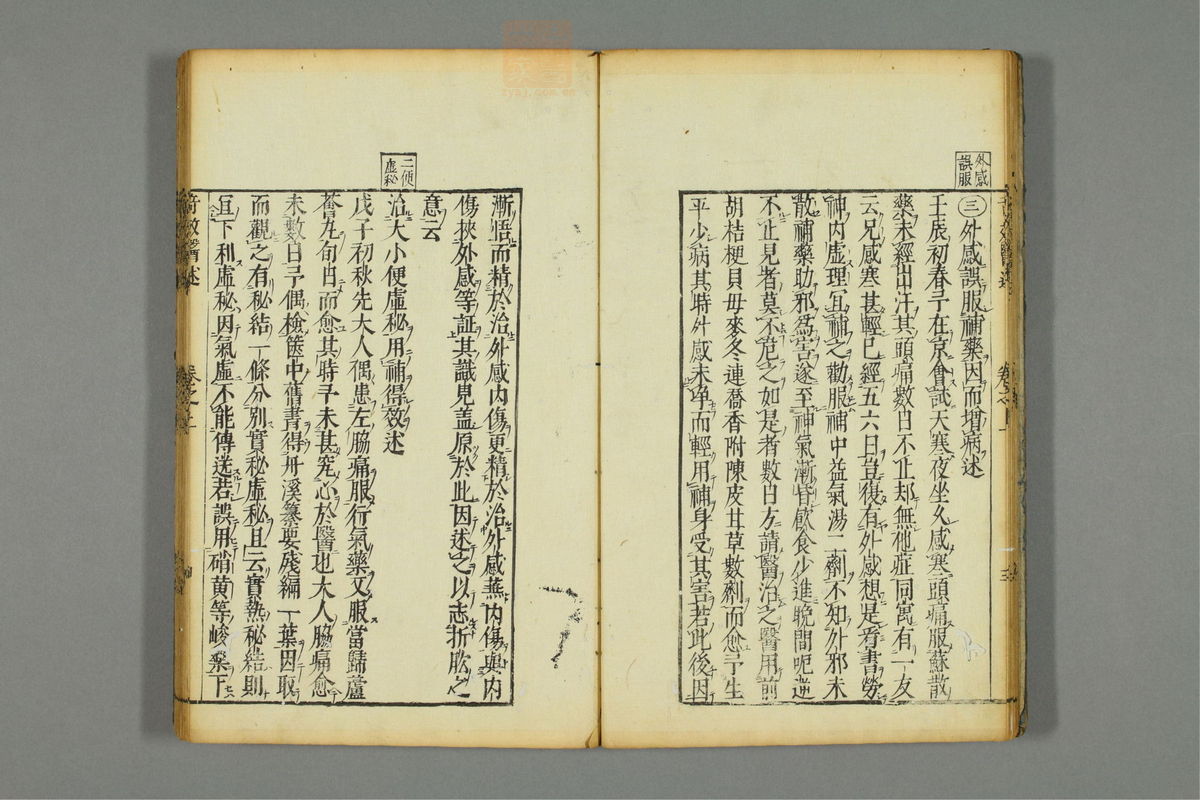 外感
誤服
㊂外感誤服補藥因而增病述
壬辰初春予在京會試天寒夜坐久感寒頭痛服蘇散
藥未經出汗其頭痛數日不止却無他症同寓有一友
云兄感寒甚輕已經五六日豈復有外感想是看書勞
神内虛理宜補之勸服補中益氣湯二劑不知外邪未
散補藥助邪爲害遂至神氣漸昏飲食少進晚間呃逆
不止見者莫不危之如是者數日方請醫治之醫用前
胡桔梗貝母麥冬連喬香附陳皮甘草數劑而愈予生
平少病其時外感未净而輕用補身受其害若此後因
漸悟而精於治外感内傷更精於治外感兼内傷與内
傷挾外感等証其識見盖原於此因述之以志折肱之
意云
二便
虛秘
治大小便虛秘用補得效述
戊子初秋先大人偶患左脇痛服行氣藥又服當歸蘆
薈丸旬日而愈其時予未甚究心於醫也大人脇痛愈
未數日予偶檢篋中舊書得丹溪纂要殘編一葉因取
而觀之有秘結一條分別實秘虛秘且云實熱秘結則
宜下利虛秘因氣虛不能傳送若誤用硝黄等峻藥下
卷之上